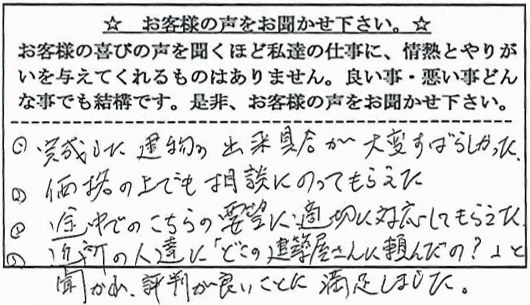 ☆ お客様の声をお聞かせ下さい。☆
お客様の喜びの声を聞くほど私達の仕事に、情熱とやりが
いを与えてくれるものはありません。良い事・悪い事どん
な事でも結構です。是非、お客様の声をお聞かせ下さい。
完成した建物の出来具合が大変すばらしかった。
価格の上でも相談にのってもらえた
途中でのこちらの要望に適切に対応してもらえた
近所の人達に「どこの建築屋さんに頼んだの?」と
聞かれ、評判が良いことに満足しました。